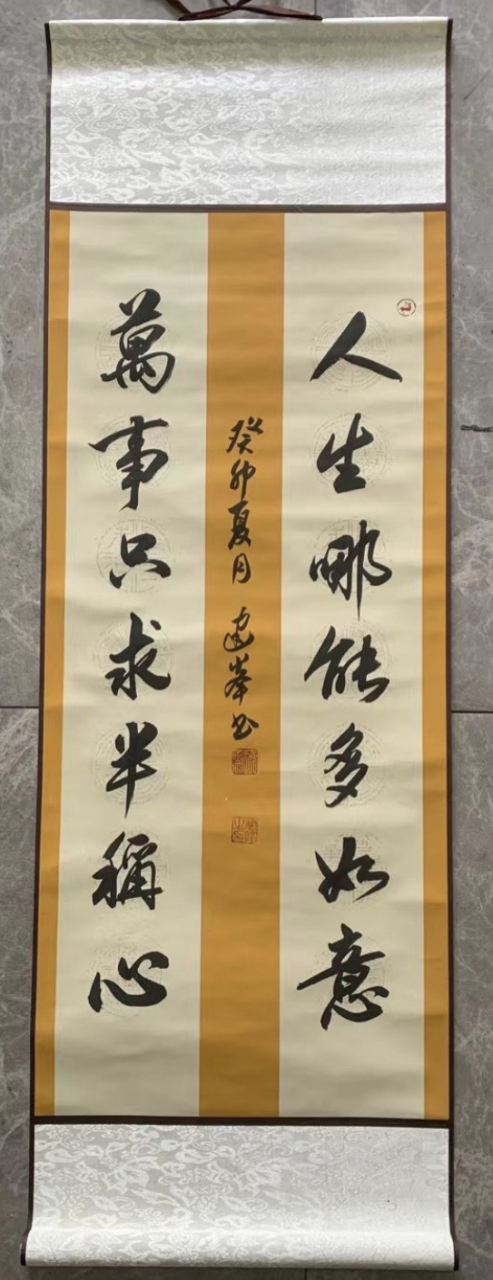 人生哪能多如意
萬事只求半稱心
癸卯夏月 建峯书